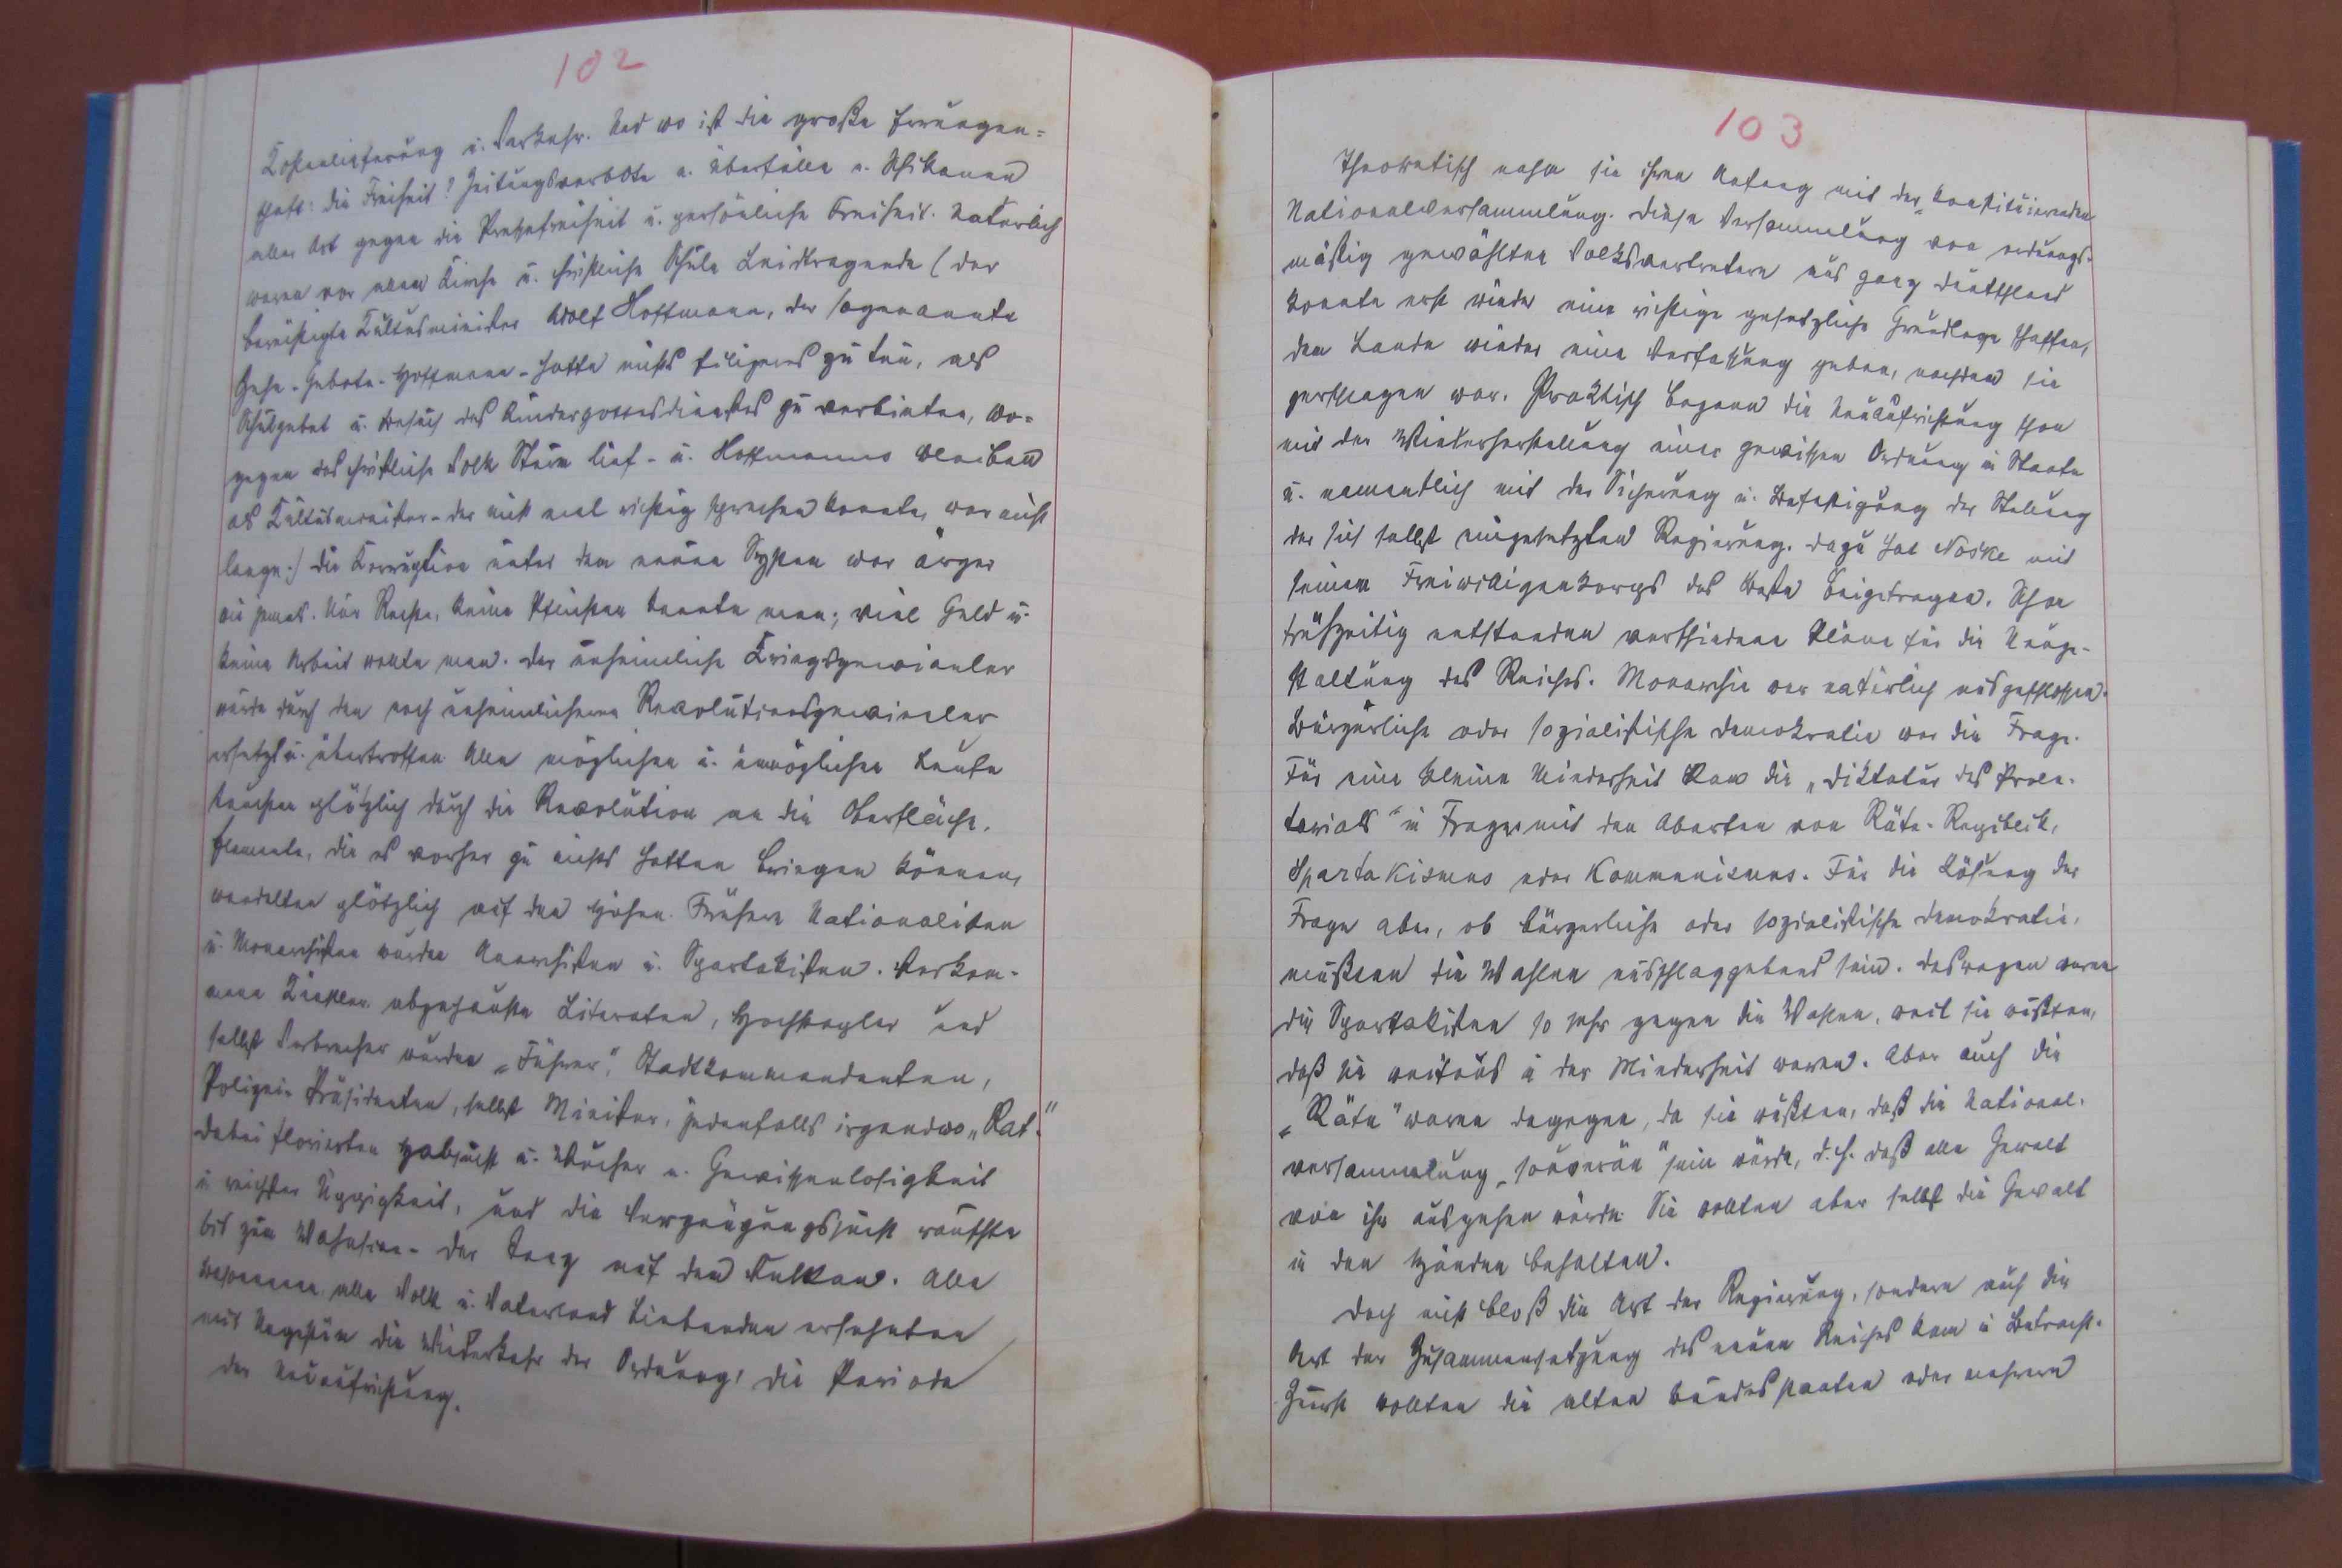 102
Kohlenlieferung u. Verkehr. Und wo ist die große Errungen=
schaft: die Freiheit? Zeitungsverbote u. Überfälle u. Schikanen
aller Art gegen die Pressefreiheit u. persönliche Freiheit. Natürlich
waren vor allem Kirche u. christliche Schule Leidtragende (der
berüchtigte Kultusminister Adolf Hoffmann, der sogenannte
Zehn-Gebote-Hoffmann - hatte nichts Eiligeres zu tun, als
Schulgebet u. Besuch des Kindergottesdienstes zu verbieten, wo=
gegen das christliche Volk Sturm lief - u. Hoffmanns Bleiben
als Kultusminister - der nicht mal richtig sprechen konnte, war nicht
lange.) Die Korruption unter dem neuen System war ärger
wie jemals. Nur Rechte, keine Pflichten kannte man; viel Geld u.
keine Arbeit wollte man. Der unheimliche Kriegsgewinnler
wurde durch den noch unheimlicheren Revolutionsgewinnler
ersetzt u. übertroffen. Alle möglichen u. unmöglichen Leute
tauchten plötzlich durch die Revolution an die Oberfläche.
Elemente, die es vorher zu nichts hatten bringen können,
wandelten plötzlich auf den Höhen. Frühere Nationalisten
u. Monarchisten wurden Anarchisten u. Spartakisten. Verkom-
mene Künstler, abgehauste Literaten, Hochstapler und
selbst Verbrecher wurden „Führer", Stadtkommandanten,
Polizei-Präsidenten, selbst Minister, jedenfalls irgendwo „Rat."
Dabei florierten Habsucht u. Wucher u. Gewissenlosigkeit
in reichster Üppigkeit, und die Vergnügungssucht rauschte
bis zum Wahnsinn - der Tanz auf dem Vulkan. Alle
Besonnenen, alle Volk u. Vaterland Liebenden ersehnten
mit Ungestüm die Wiederkehr der Ordnung, die Periode
der Neuaufrichtung.
103
Theoretisch nahm sie ihren Anfang mit der konstituierenden
Nationalversammlung. Diese Versammlung von ordnungs-
mäßig gewählten Volksvertretern aus ganz Deutschland
konnte erst wieder eine richtige gesetzliche Grundlage schaffen,
dem Lande wieder eine Verfassung geben, nachdem sie
zerschlagen war. Praktisch begann die Neuaufrichtung schon
mit der Wiederherstellung einer gewissen Ordnung im Staate
u. namentlich mit der Sicherung u. Befestigung der Stellung
der sich selbst eingesetzten Regierung. Dazu hat Noske mit
seinem Freiwilligenkorps das Beste beigetragen. Schon
frühzeitig entstanden verschiedene Pläne für die Neuge-
staltung des Reiches. Monarchie war natürlich ausgeschlossen.
Bürgerliche oder sozialistische Demokratie war die Frage.
Für eine kleine Minderheit kam die „Diktatur des Prole-
tariats" in Frage mit den Abarten von Räte-Republik,
Spartakismus oder Kommunismus. Für die Lösung der
Frage aber, ob bürgerliche oder sozialistische Demokratie,
mußten die Wahlen ausschlaggebend sein. Deswegen waren
die Spartakisten so sehr gegen die Wahlen, weil sie wußten,
daß sie weitaus in der Minderheit waren. Aber auch die
„Räte" waren dagegen, da sie wußten, daß die National-
versammlung „souverän" sein würde, d.h. daß alle Gewalt
von ihr ausgehen würde. Sie wollten aber selbst die Gewalt
in den Händen behalten.
Doch nicht bloß die Art der Regierung, sondern auch die
Art der Zusammensetzung des neuen Reiches kam in Betracht.
Zuerst wollten die alten Bundesstaaten oder mehrere